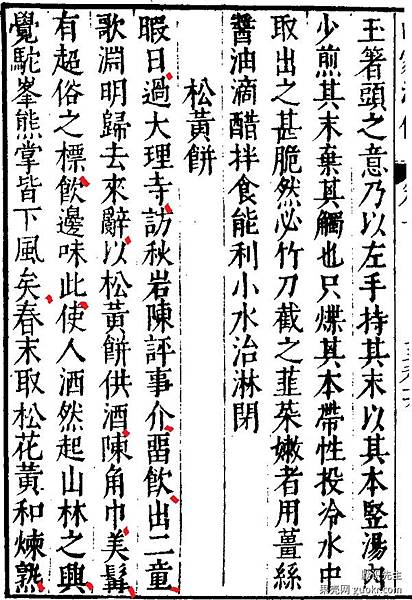 玉箸頭之意乃以左手持其末以其本竪湯內
少煎其末棄其觸也只煠其本帶性投冷水中
取出之甚脆然必竹刀截之韭菜嫩者用薑絲
醬油滴醋拌食能利小水治淋閉
松黃餅
暇日過大理寺訪秋岩陳評事介畱飲出二童
歌淵明歸去來辭以松黃餅供酒陳角巾美髯
有超俗之標飲邊味此使人洒然起山林之興
覺駝峯熊掌皆下風矣春末取松花黃和煉熟
果壳网 guokr.com